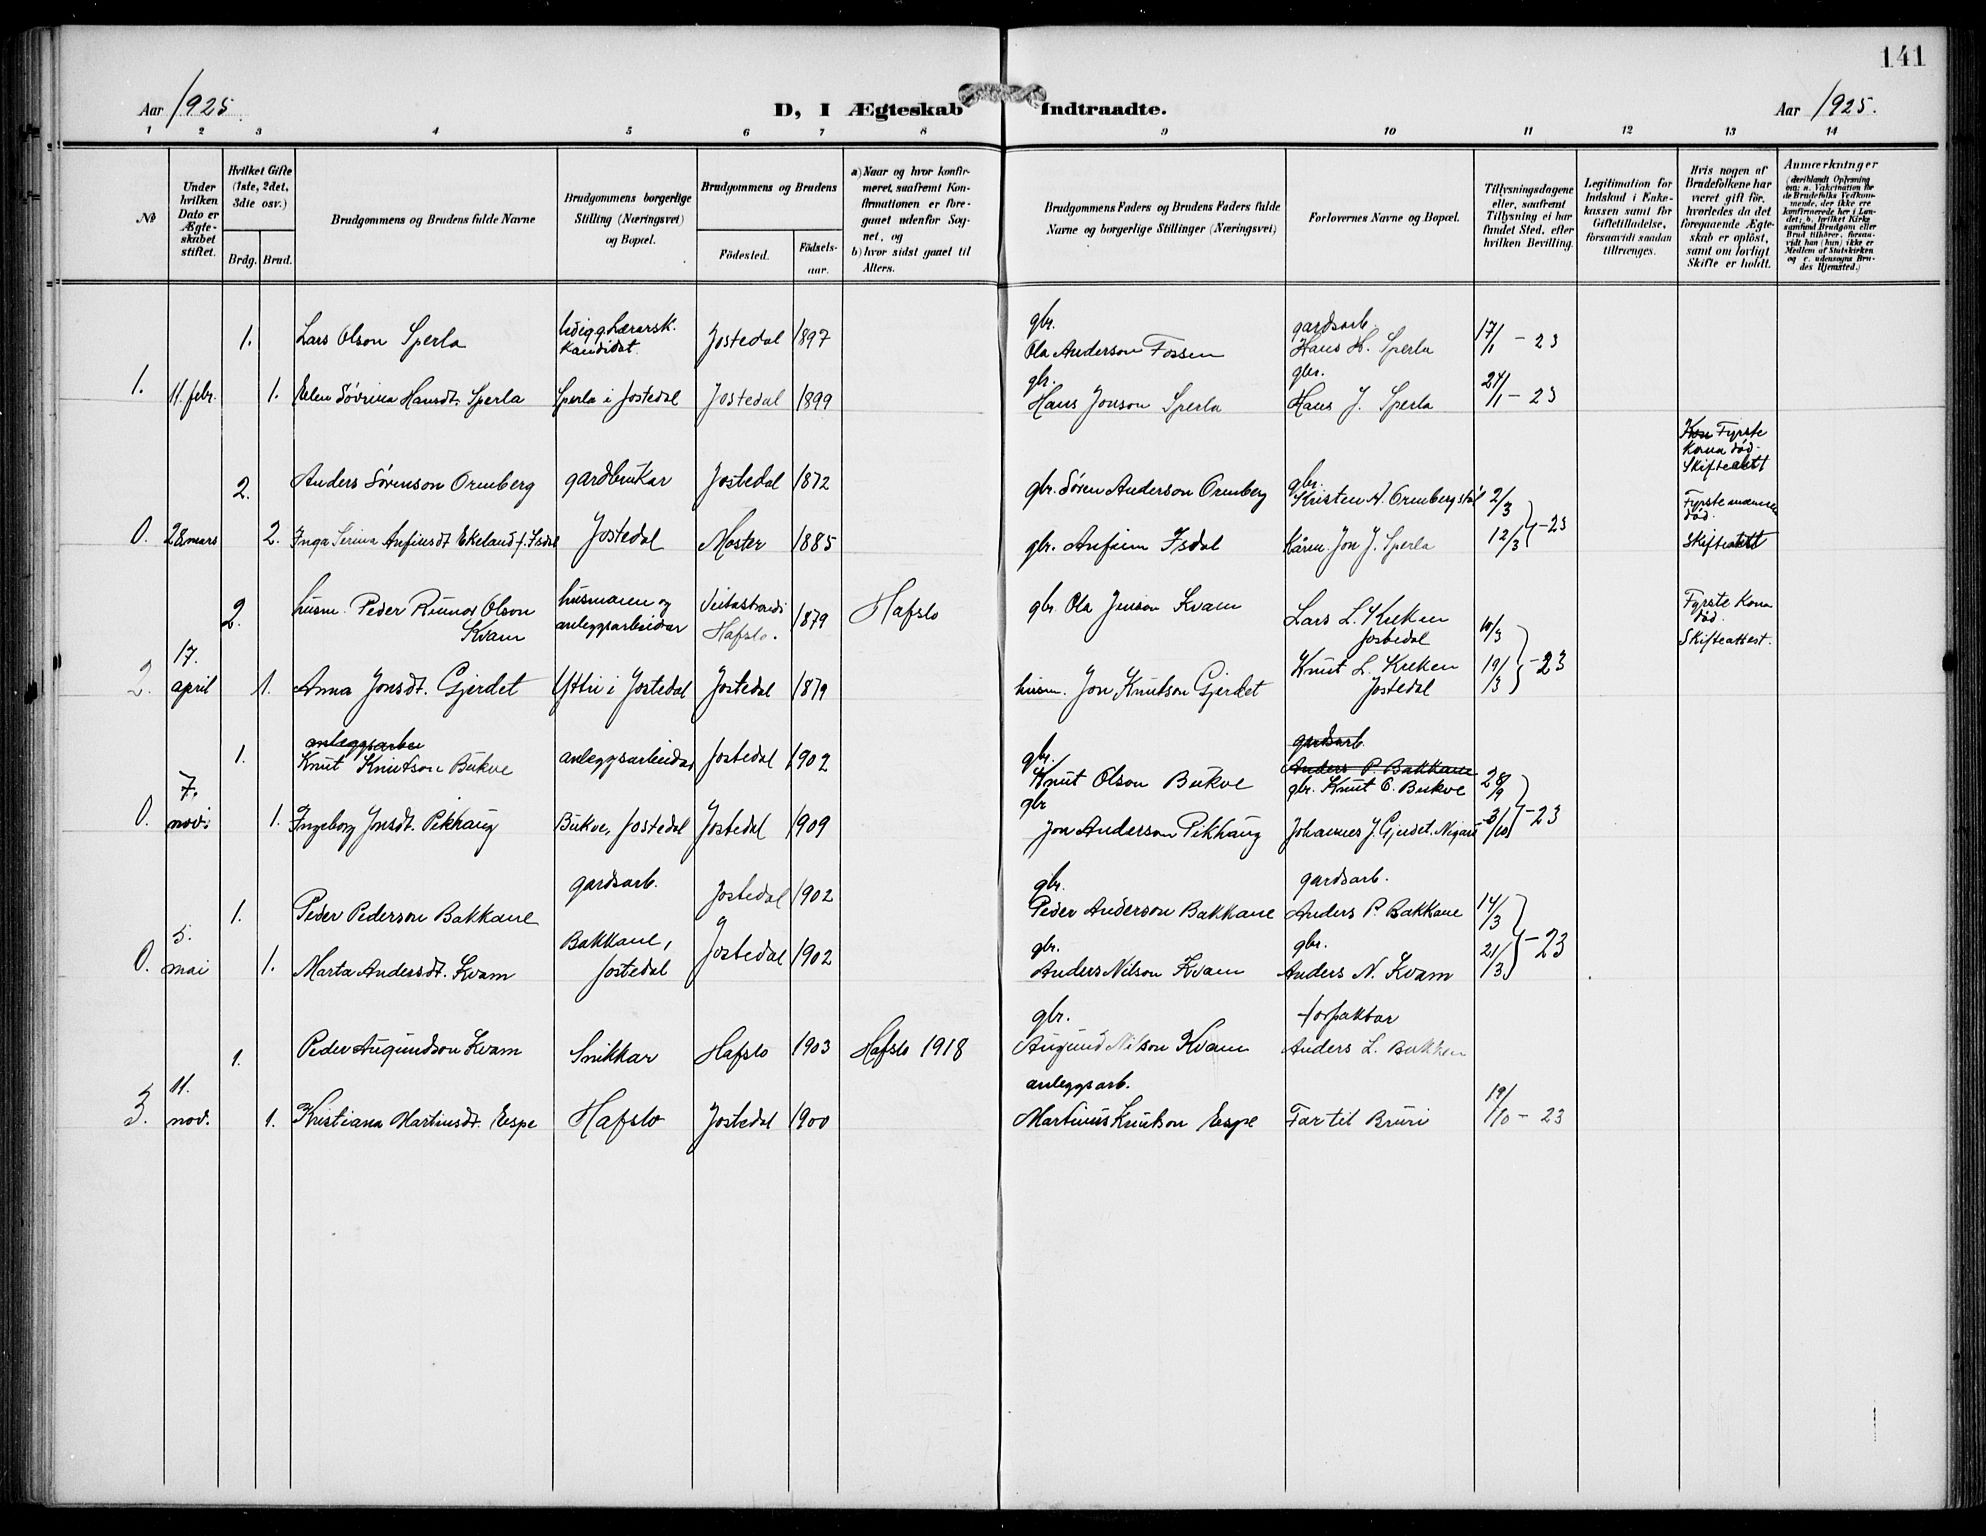 141
Aar 1925.
D, I Ægteskab Indtraadte.
Aar 1925.
1 2 3 4 5 6 7 8 9 10 11 12 13 14
No
Under hvilken Dato er Ægteskabet stiftet.
Hvilket Gifte (1ste, 2det, 3die osv.)
Brdg. Brud.
Brudgommens og Brudens fulde Navne
Brudgommens borgerlige Stilling (Næringsvei) og Bopæl.
Brudgommens og Brudens
Fødested. Fødselsaar.
a) Naar og hvor konfirmeret, saafremt Konfirmationen er foregaaet udenfor Sognet, og
b) hvor sidst gaaet til Alters.
Brudgommens Faders og Brudens Faders fulde Navne og borgerlige Stillinger (Næringsvei)
Forlovernes Navne og Bopæl.
Tillysningsdagene eller, saafremt Tillysning ei har fundet Sted, efter hvilken Bevilling.
Legitimation for Indskud i Enkekassen samt for Giftetilladelse, forsaavidt saadan tiltrænges.
Hvis nogen af Brudefolkene har været gift før, hvorledes da det foregaaende Ægteskab er opløst, samt om lovligt Skifte er holdt.
Anmærkninger
(deriblandt Oplysning om: a. Vakcination for de Brudefolks Vedkommende, der ikke ere konfirmerede her i Landet; b. hvilket Kirkesamfund Brudgom eller Brud tilhører, forsaavidt han (hun) ikke er Medlem af Statskirken og c. udensogns Brudes Hjemsted.)
1. Lars Olson Sperla
lærarsk. kandidat Jostedal 1897
gbr. Ola Anderson Fossen
gardsarb. Hans H. Sperla 17/1 - 23
1. 11. febr. 1. Elen Søvrina Hansdt. Sperla Sperla i Jostedal Jostedal 1899
gbr. Hans Jonson Sperla
gbr. Hans J. Sperla 24/1 - 23
2. Anders Sørenson Ormberg gardbrukar Jostedal 1872
gbr. Søren Anderson Ormberg
gbr. Kristen A. Ormbergstøl 2/3
Fyrste Kona død. Skifteattest
0. 28 mars 2. Inga Serina Anfinsdt Ekeland f. Isdal Jostedal Moster 1885
gbr. Anfinn Isdal
Jon J. Sperla 12/3 - 23
Fyrste mannen død. Skifteattest
2. husm. Peder Rumor Olson Kvam
husmann og anleggsarbeidar Veitastrond i Hafslo. 1879 Hafslo
gbr. Ola Jenson Kvam
Lars L. Kreken Jostedal 10/3
Fyrste Kona død. Skifteattest.
2. 17. april 1. Anna Jonsdt. Gjerdet Yttri i Jostedal Jostedal 1879
husm. Jon Knutson Gjerdet
Knut L. Kreken Jostedal 19/3 - 23
anleggsarbei
1. Knut Knutson Bukve anleggsarbeidar Jostedal 1902
gbr. Knut Olson Bukve
gardsarb. Anders P. Bakkane
gbr. Knut O. Bukve 28/9
0. 7. nov. 1. Ingeborg Jonsdt. Pikhaug Bukve, Jostedal Jostedal 1909
gbr Jon Anderson Pikhaug
Johannes J. Gjerdet, Nigard 3/10 - 23
1. Peder Pederson Bakkane gardsarb. Jostedal 1902
gbr. Peder Anderson Bakkane
gardsarb. Anders P. Bakkane 14/3
0. 5. mai 1. Marta Andersdt. Kvam Bakkane, Jostedal Jostedal 1902
gbr. Anders Nilson Kvam
gbr. Anders N. Kvam 21/3 - 23
1. Peder Augundson Kvam Snikkar Hafslo 1903 Hafslo 1918
gbr. Augund Nilson Kvam
forpaktar Anders L. Bakken
3. 11. nov. 1. Kristiana Martinsdt. Espe Hafslo Jostedal 1900
anleggsarb. Martinus Knutson Espe
Far til Bruri 19/10 - 23